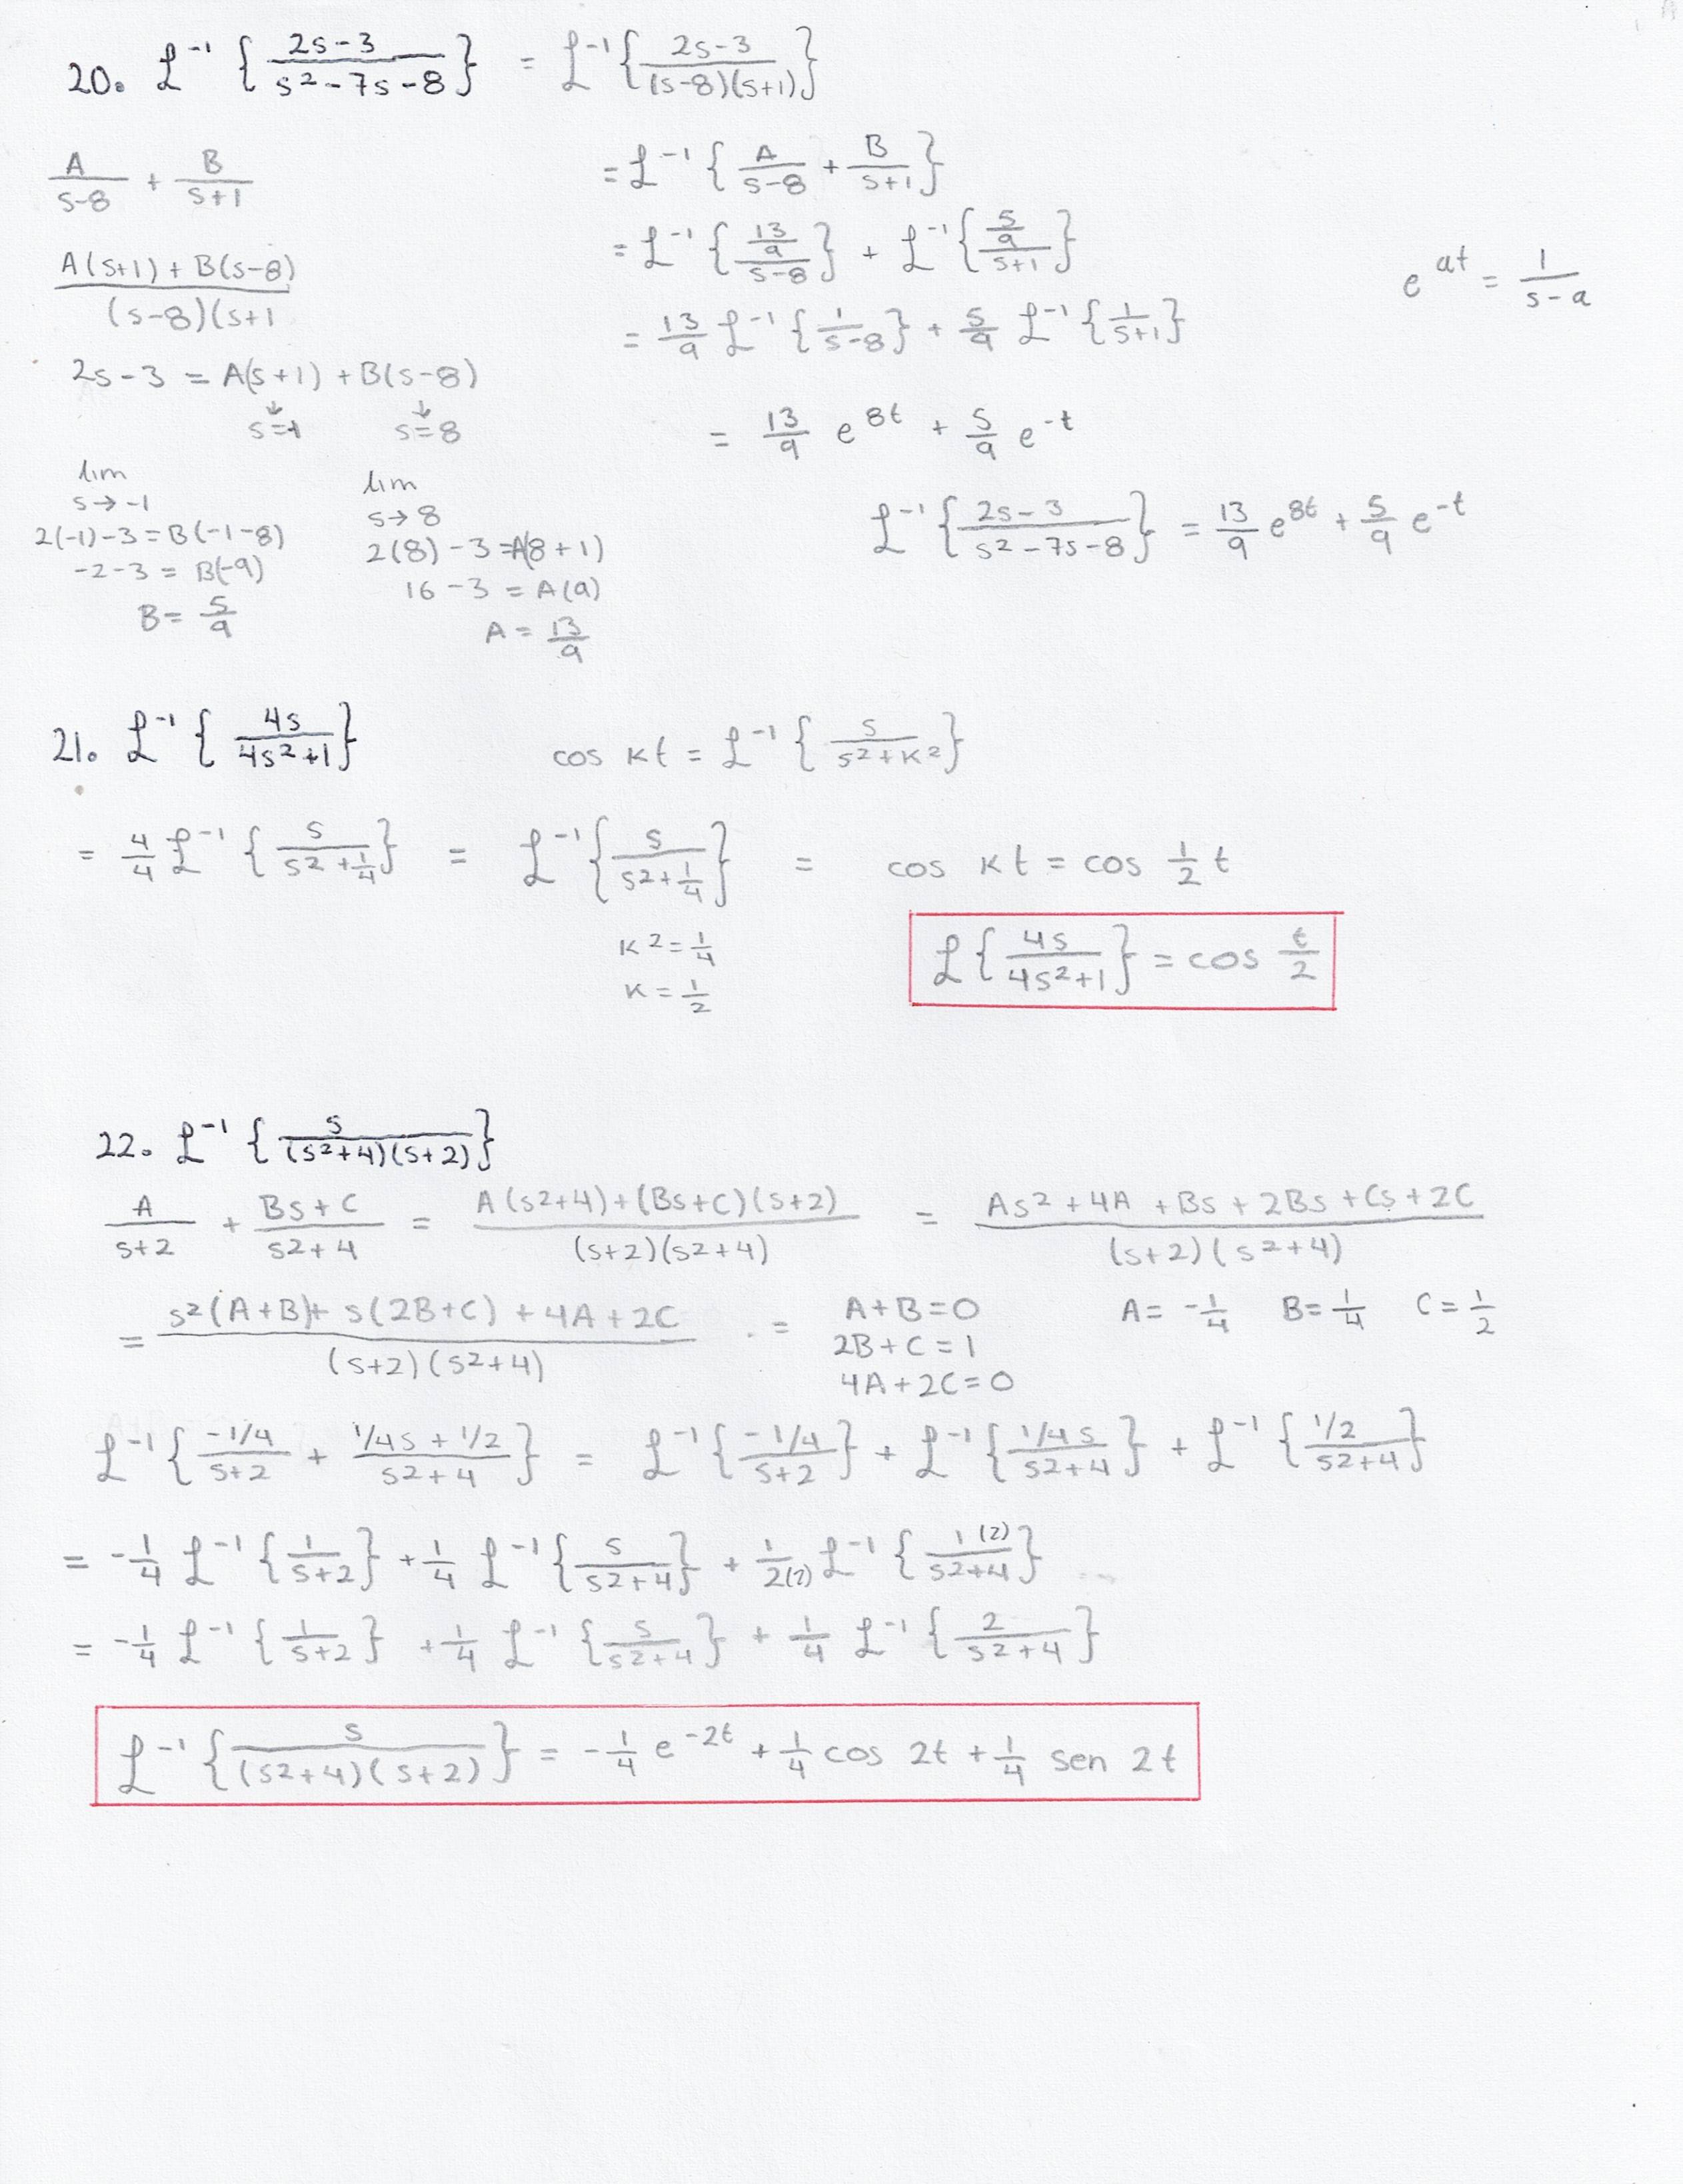 20. ℒ⁻¹ { (2s-3)/(s²-7s-8) } = ℒ⁻¹ { (2s-3)/((s-8)(s+1)) }
A/(s-8) + B/(s+1)
= ℒ⁻¹ { A/(s-8) + B/(s+1) }
= ℒ⁻¹ { (13/9)/(s-8) } + ℒ⁻¹ { (5/9)/(s+1) }
e^(at) = 1/(s-a)
(A(s+1) + B(s-8))/((s-8)(s+1
= 13/9 ℒ⁻¹ { 1/(s-8) } + 5/9 ℒ⁻¹ { 1/(s+1) }
2s-3 = A(s+1) + B(s-8)
↓ ↓
s=-1 s=8
= 13/9 e^(8t) + 5/9 e^(-t)
lim
s→-1
2(-1)-3 = B(-1-8)
-2-3 = B(-9)
B = 5/9
lim
s→8
2(8)-3 = A(8+1)
16-3 = A(9)
A = 13/9
ℒ⁻¹ { (2s-3)/(s²-7s-8) } = 13/9 e^(8t) + 5/9 e^(-t)
21. ℒ⁻¹ { 4s/(4s²+1) } cos kt = ℒ⁻¹ { s/(s²+k²) }
= 4/4 ℒ⁻¹ { s/(s²+1/4) } = ℒ⁻¹ { s/(s²+1/4) } = cos kt = cos 1/2 t
k² = 1/4
k = 1/2
ℒ { 4s/(4s²+1) } = cos t/2
22. ℒ⁻¹ { s/((s²+4)(s+2)) }
A/(s+2) + (Bs+C)/(s²+4) = (A(s²+4)+(Bs+C)(s+2))/((s+2)(s²+4)) = (As²+4A+Bs+2Bs+Cs+2C)/((s+2)(s²+4))
= (s²(A+B)+s(2B+C)+4A+2C)/((s+2)(s²+4)) =
A+B=0
2B+C=1
4A+2C=0
A= -1/4 B= 1/4 C= 1/2
ℒ⁻¹ { (-1/4)/(s+2) + (1/4s+1/2)/(s²+4) } = ℒ⁻¹ { (-1/4)/(s+2) } + ℒ⁻¹ { (1/4 s)/(s²+4) } + ℒ⁻¹ { (1/2)/(s²+4) }
= -1/4 ℒ⁻¹ { 1/(s+2) } + 1/4 ℒ⁻¹ { s/(s²+4) } + 1/2(2) ℒ⁻¹ { 1(2)/(s²+4) }
= -1/4 ℒ⁻¹ { 1/(s+2) } + 1/4 ℒ⁻¹ { s/(s²+4) } + 1/4 ℒ⁻¹ { 2/(s²+4) }
ℒ⁻¹ { s/((s²+4)(s+2)) } = -1/4 e^(-2t) + 1/4 cos 2t + 1/4 sen 2t